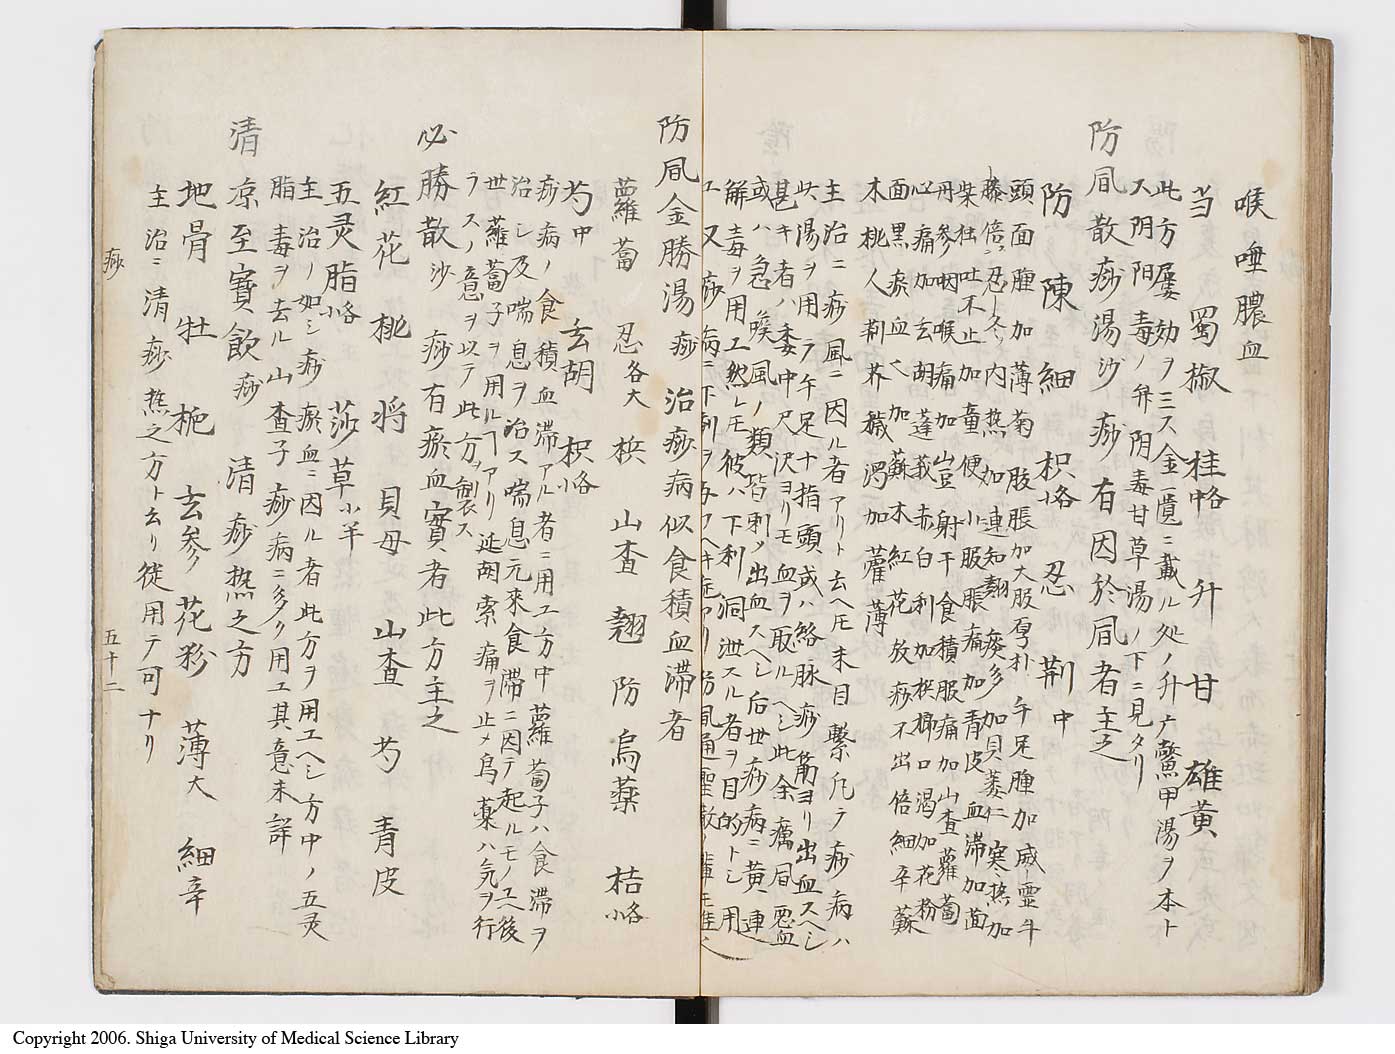 喉唾膿血
当 蜀椒 桂中略 升 甘 雄黄
此方屡効ヲミス金匱ニ載ル処ノ升六鱉甲湯ヲ本ト
ス阴阳毒ノ弁阴毒甘草湯ノ下ニ見タリ
防凬散 痧湯 沙 痧有因於凬者主之
防 陳 細 枳小略 忍 荆中
頭面腫加薄菊 肢脹加大腹厚朴 手足腫加威靈斗
藤倍忍 内热加連知翹 痰多加貝蒌仁 寒热加
柴独 吐不止加童便 小腹脹痛加青皮 血滞加茜
丹参 咽喉痛加豈射干 食積腹痛加山查蘿蔔
心痛加玄胡莪 赤白利加梹榔 口渴加花粉
面黒痰血人加蘇木紅花 放痧不出倍細辛蘇
木桃人荆芥 穢濁加藿薄
主治ニ痧風ニ因ル者アリト云ヘ𪜈未目繫凢テ痧病ハ
此湯ヲ用ラ午足十指頭或ハ絡脉痧筋ヨリ出血スヘシ
甚キ者ハ委中尺沢ヨリモ血ヲ取ルヘシ此余癘凬悪血
或ハ急喉風ノ類皆刺ノ出血スヘシ后世痧病ニ黄連
解毒ヲ用エ然レ𪜈彼ハ下利洞泄スル者ヲ目的トシ用
エ又痧病ニ下剤ヲ与フヘキ症アリ防凬通聖散ノ輩
防凬金勝湯 痧 治痧病似食積血滞者
蘿蔔 忍各大 梹 山查 翹 防 烏薬 桔小略
芍中 玄胡 枳小略
痧病ノ食積血滞アル者ニ用エ方中蘿蔔子ハ食滞ヲ
治シ及喘息ヲ治ス喘息元來食滞ニ因テ起ルモノユヘ後
世蘿蔔子ヲ用ルヿアリ延胡索痛ヲ止メ烏薬ハ気ヲ行
ラスノ意ヲ以テ此方ヲ製ス
必勝散 沙 痧有瘀血實者此方主之
紅花 桃 将 貝母 山查 芍 青皮
五灵脂小略 莎草小半
主治ノ如シ痧瘀血ニ因ル者此方ヲ用エヘシ方中ノ五灵
脂毒ヲ去ル山查子痧病ニ多ク用エ其意未詳
清凉至寳飲 痧 清痧热之方
地骨 牡 栀 玄参 花粉 薄大 細辛
主治ニ清痧熱之方ト云リ従用テ可ナリ
痧 五十二
Copyright 2006. Shiga University of Medical Science Library